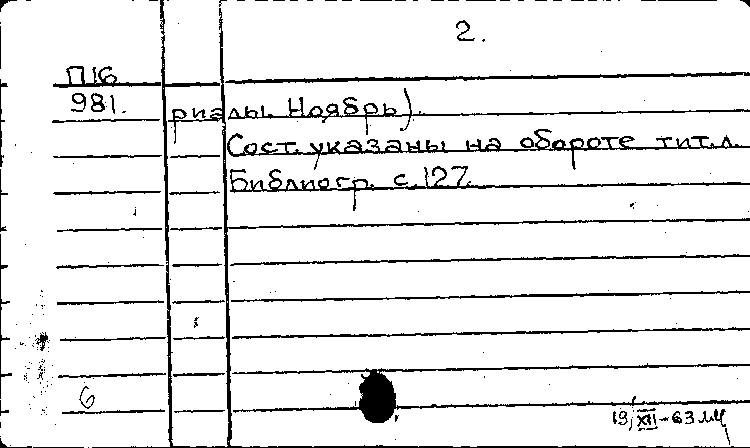 2.
П16
981. риалы. Ноябрь).
Сост. указаны на обороте тит. л.
Библиогр. с. 127.
6
19/XII-63